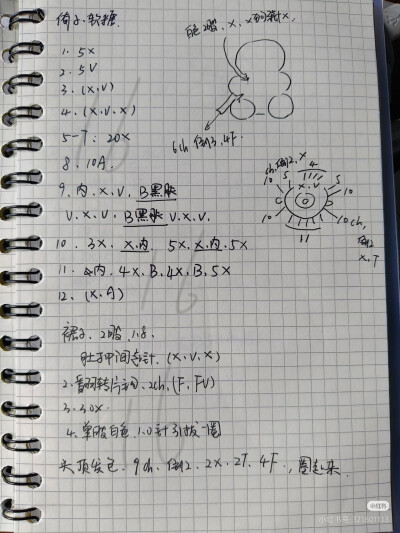 倚子软糖
1. 5X
2. 5V
3. (X.V)
4. (X.V.X)
5-7: 20X
8. 10A.
9. 内.X.V. B黑肤
V.X.V. B黑肤 V.X.V.
10. 3X. X内. 5X. X内. 5X
11. 内. 4X. B. 4X. B. 5X
12. (X.A)
裙子. 2股. 1.8.
肚子中间 针. (X.V.X)
2. 翻转 2ch. (F. FV)
3. 30X.
4. 单股白色. 1.0针引拔一圈
头顶发包. 9ch. 倒2. 2X. 2T. 4F., 圈起来.
2股. X. X
6ch 倒3. 4F.
ch. 倒2. X
4
10 5 X.V 5 10
10 11 10ch,
倒2
X.T
小红书